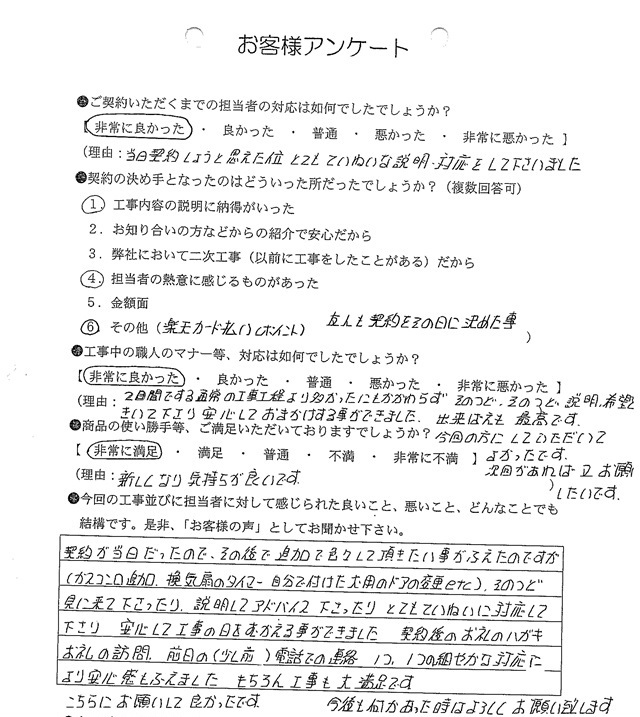 お客様アンケート
●ご契約いただくまでの担当者の対応は如何でしたでしょうか？
【 非常に良かった ・ 良かった ・ 普通 ・ 悪かった ・ 非常に悪かった 】
(理由：当日契約しようと思えた位 とてもていねいな説明・対応をして下さいました
●契約の決め手となったのはどういった所だったでしょうか？（複数回答可）
1．工事内容の説明に納得がいった
2．お知り合いの方などからの紹介で安心だから
3．弊社において二次工事（以前に工事をしたことがある）だから
4．担当者の熱意に感じるものがあった
5．金額面
6．その他（楽天カード払い(ポイント) 友人も契約をその日に決めた事 ）
●工事中の職人のマナー等、対応は如何でしたでしょうか？
【 非常に良かった ・ 良かった ・ 普通 ・ 悪かった ・ 非常に悪かった 】
(理由：2日間でする通常の工事工程より多かったにもかかわらず そのつど、そのつど、説明、希望
きいて下さり 安心しておまかせする事ができました. 出来はえも 最高です.
●商品の使い勝手等、ご満足いただいておりますでしょうか？ 今回の方に していただいて
【 非常に満足 ・ 満足 ・ 普通 ・ 不満 ・ 非常に不満 】 よかったです.
(理由：新しくなり 気持ちが良いです. 次回があれば 又 お願い
）したいです.
●今回の工事並びに担当者に対して感じられた良いこと、悪いこと、どんなことでも
結構です。是非、「お客様の声」としてお聞かせ下さい。
契約が当日だったので、その後で 追加で色々して頂きたい事がふえたのですが
(ガスコンロ追加、換気扇のタイマー 自分で付けた犬用のドアの変更etc)、そのつど
見に来て下さったり、説明してアドバイス下さったり とてもていねいに対応して
下さり 安心して工事の日をむかえる事ができました 契約後のお礼のハガキ
お礼の訪問、前日の(少し前)電話での連絡 1つ、1つの細やかな対応に
より安心感もふえました もちろん工事も大満足です
こちらにお願いして良かったです. 今後も何かあった時はよろしくお願い致します